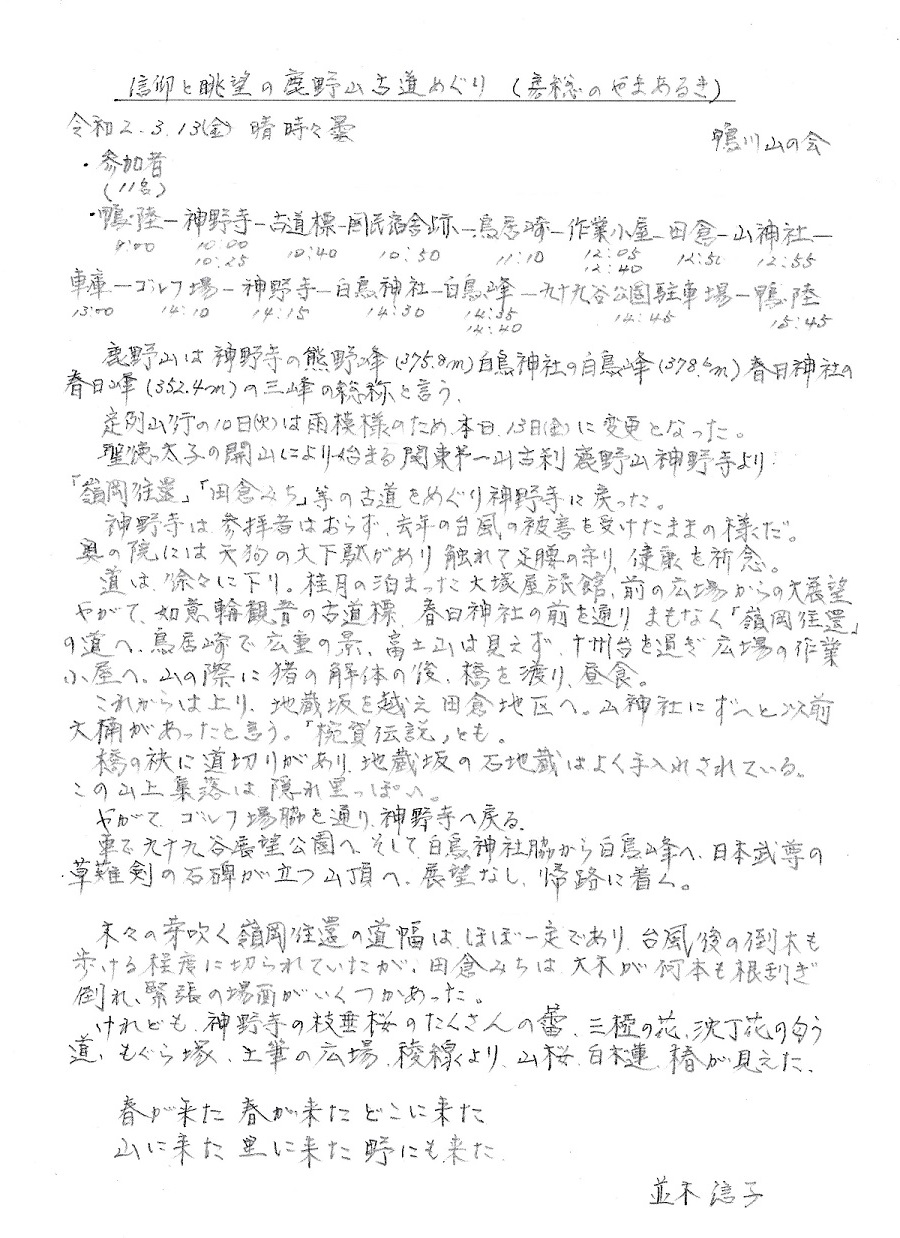 信仰と眺望の鹿野山古道めぐり (房総のやまあるき)
令和2.3.13(金) 晴時々曇
鴨川山の会
・参加者
(11名)
・鴨・陸―神野寺―古道標―国民宿舎跡―鳥居崎―作業小屋―田倉―山神社―
9:00 10:00 10:40 10:50 11:10 12:05 12:50 12:55
10:25 12:40
車庫―ゴルフ場―神野寺―白鳥神社―白鳥峰―九十九谷公園駐車場―鴨・陸
13:00 14:10 14:15 14:30 14:35 14:45 15:45
14:40
鹿野山は神野寺の熊野峰(375.8m)白鳥神社の白鳥峰(378.6m)春日神社の
春日峰(352.4m)の三峰の総称と言う。
定例山行の10日(火)は雨模様のため、本日、13日(金)に変更となった。
聖徳太子の開山により始まる関東第一山古刹鹿野山神野寺より
「嶺岡往還」「田倉みち」等の古道をめぐり神野寺に戻った。
神野寺は、参拝者はおらず、去年の台風の被害を受けたままの様だ。
奥の院には天狗の大下駄があり触れて足腰の守り、健康を祈念。
道は、徐々に下り。桂月の泊まった大塚屋旅館、前の広場からの大展望
やがて、如意輪観音の古道標、春日神社の前を通り、まもなく「嶺岡往還」
の道へ、鳥居崎で広重の景、富士山は見えず、十州台を過ぎ広場の作業
小屋へ、山の際に猪の解体の後、橋を渡り、昼食。
これからは上り、地蔵坂を越え田倉地区へ。山神社にずっと以前
大楠があったと言う。「椀貸伝説」とも。
橋の袂に道切りがあり、地蔵坂の石地蔵はよく手入れされている。
この山上集落は隠れ里っぽい。
やがて、ゴルフ場脇を通り、神野寺へ戻る。
車で九十九谷展望公園へ、そして白鳥神社脇から白鳥峰へ、日本武尊の
草薙剣の石碑が立つ山頂へ、展望なし、帰路に着く。
木々の芽吹く嶺岡往還の道幅は、ほぼ一定であり、台風後の倒木も
歩ける程度に切られていたが、田倉みちは、大木が何本も根刮ぎ
倒れ、緊張の場面がいくつかあった。
けれども、神野寺の枝垂桜のたくさんの蕾、三椏の花、沈丁花の匂う
道、もぐら塚、土筆の広場、稜線より、山桜、白木蓮、椿が見えた、
春が来た 春が来た どこに来た
山に来た 里に来た 野にも来た
並木